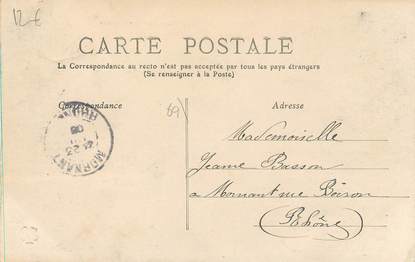 12€
CARTE POSTALE
La Correspondance au recto n'est pas acceptée par tous les pays étrangers
(Se renseigner à la Poste)
Correspondance
Adresse
69
MORNANT
RHÔNE
Mademoiselle
Jeanne Basson
a Mornant rue
Rhône